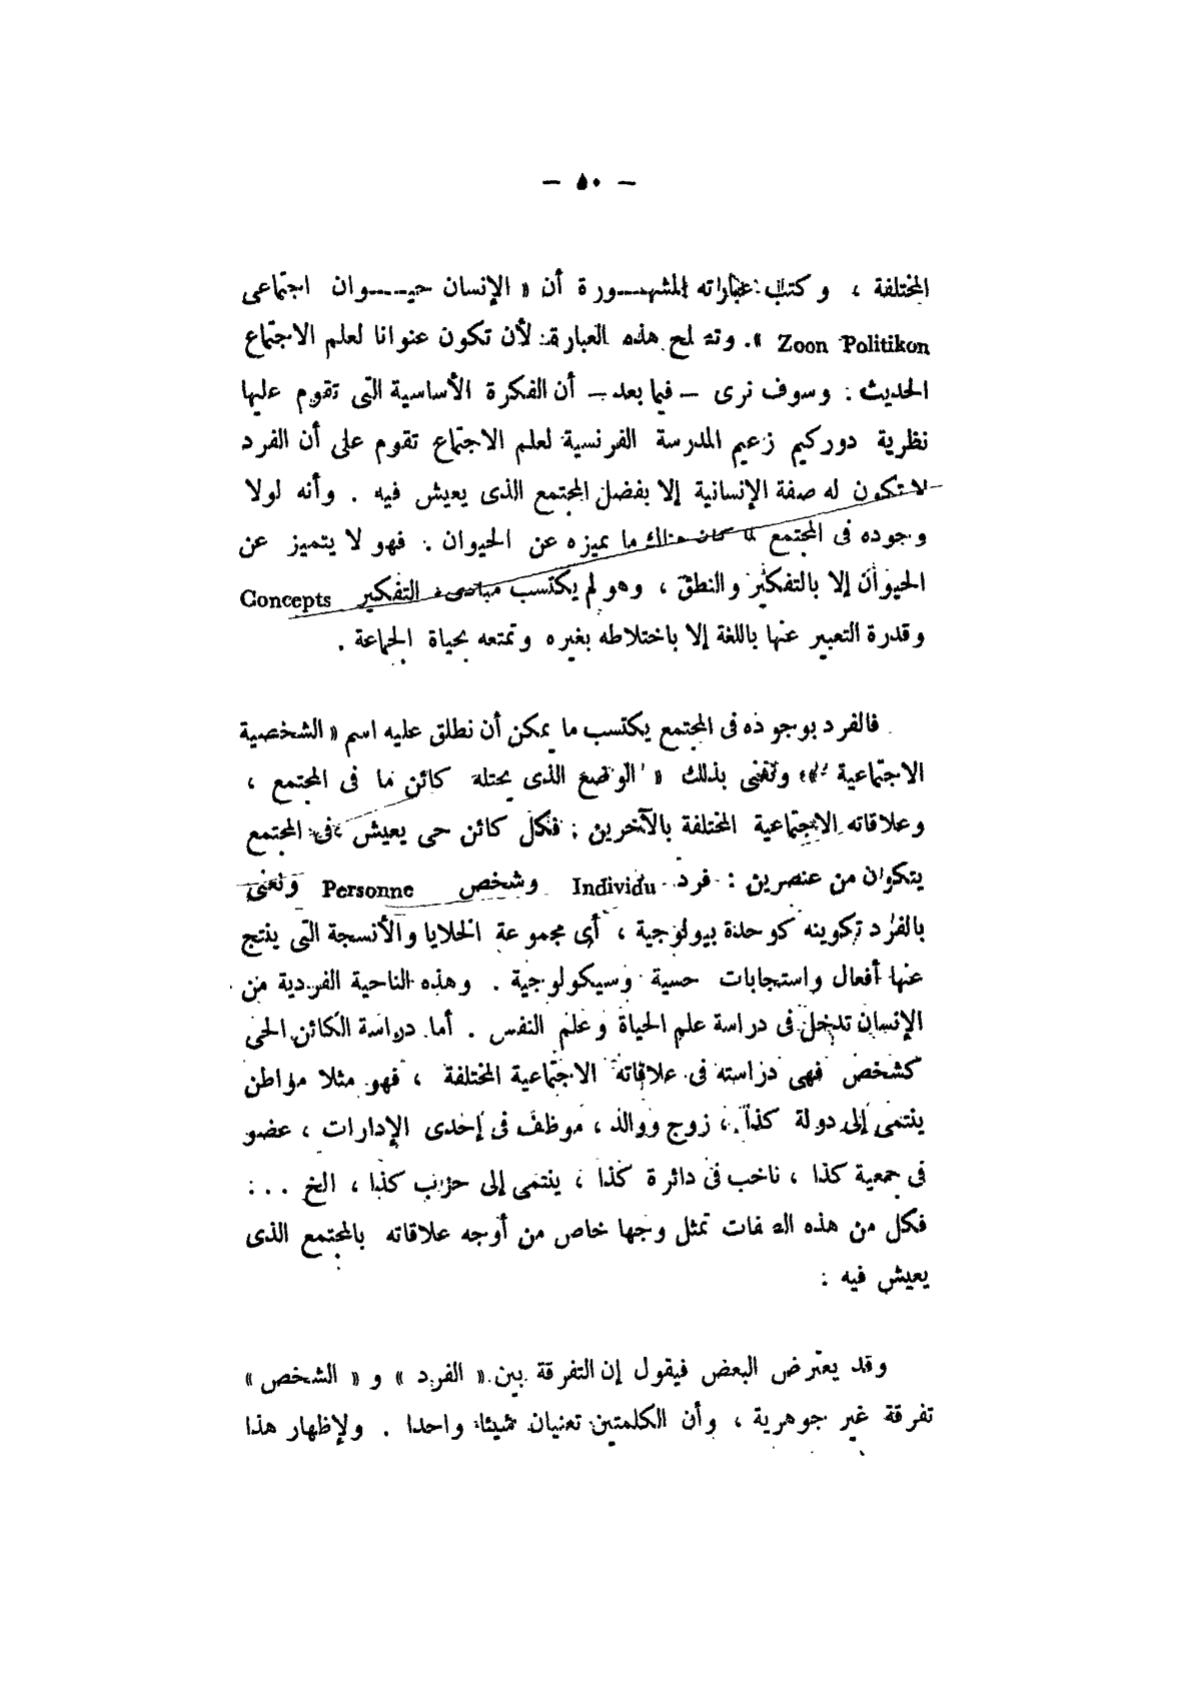 — ٥٠ —
المختلفة ، وكتب عباراته المشهورة أن « الإنسان حيوان اجتماعى
Zoon Politikon ». وتصلح هذه العبارة لأن تكون عنوانا لعلم الاجتماع
الحديث . وسوف نرى — فيما بعد — أن الفكرة الأساسية التى تقوم عليها
نظرية دوركيم زعيم المدرسة الفرنسية لعلم الاجتماع تقوم على أن الفرد
لا تكون له صفة الإنسانية إلا بفضل المجتمع الذى يعيش فيه . وأنه لولا
وجوده فى المجتمع لما كان هناك ما يميزه عن الحيوان . فهو لا يتميز عن
الحيوان إلا بالتفكير والنطق ، وهو لم يكتسب مبادىء التفكير Concepts
وقدرة التعبير عنها باللغة إلا باختلاطه بغيره وتمتعه بحياة الجماعة .
فالفرد بوجوده فى المجتمع يكتسب ما يمكن أن نطلق عليه اسم « الشخصية
الاجتماعية » ونعنى بذلك « الوضع الذى يحتله كائن ما فى المجتمع ،
وعلاقاته الاجتماعية المختلفة بالآخرين ; فكل كائن حى يعيش فى المجتمع
يتكون من عنصرين : فرد Individu وشخص Personne ونعنى
بالفرد تكوينه كوحدة بيولوجية ، أى مجموعة الخلايا والأنسجة التى ينتج
عنها أفعال واستجابات حسية وسيكولوجية . وهذه الناحية الفردية من
الإنسان تدخل فى دراسة علم الحياة وعلم النفس . أما دراسة الكائن الحى
كشخص فهى دراسته فى علاقاته الاجتماعية المختلفة ، فهو مثلا مواطن
ينتمى إلى دولة كذا ، زوج ووالد ، موظف فى إحدى الإدارات ، عضو
فى جمعية كذا ، ناخب فى دائرة كذا ، ينتمى إلى حزب كذا ، الخ . . :
فكل من هذه الصفات تمثل وجها خاص من أوجه علاقاته بالمجتمع الذى
يعيش فيه :
وقد يعترض البعض فيقول إن التفرقة بين « الفرد » و « الشخص »
تفرقة غير جوهرية ، وأن الكلمتين تعنيان شيئا واحدا . ولإظهار هذا